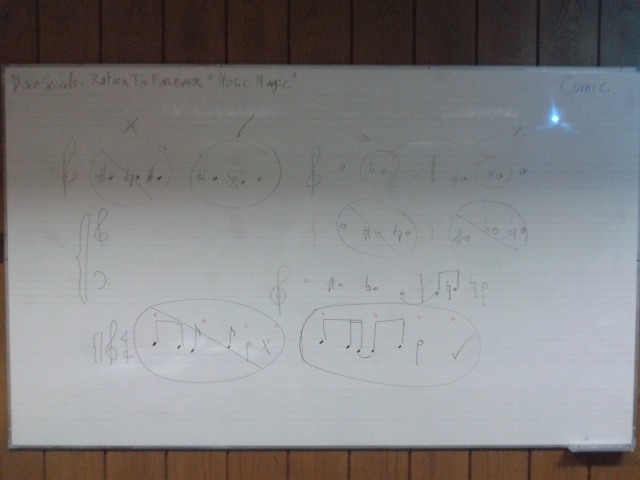 Disco Sevende: Return To Forever "Music Magic"
Comic
X
X